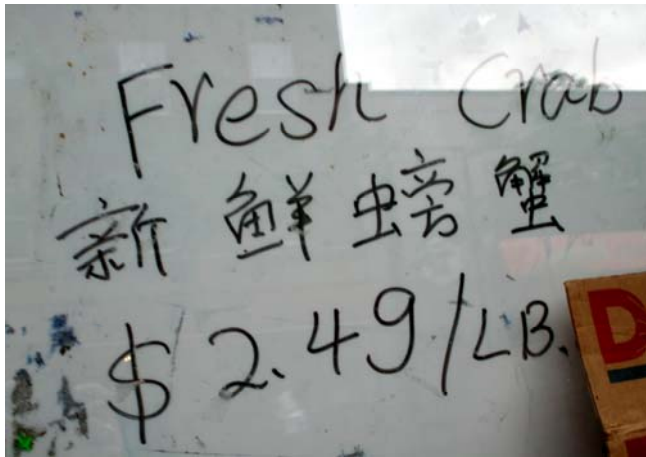 Fresh Crab
新鲜螃蟹
$2.49/LB.
D